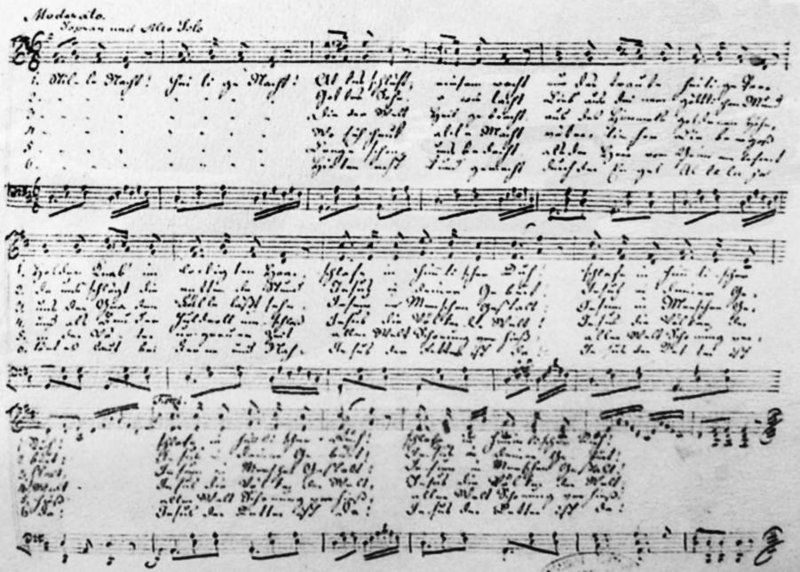 Moderato.
Sopran und Alto Solo
1. Stille Nacht! heilige Nacht! Alles schläft; einsam wacht nur das traute heilige Paar
2. Gottes Sohn! o wie lacht Lieb aus deinem göttlichen Mund
3. die der Welt Heil gebracht, aus des Himmels goldenen Höhn
4. wo sich heut alle Macht väterlicher Liebe ergoß
5. lange schon uns bedacht, als der Herr vom Grimme befreit
6. Hirten erst kund gemacht durch der Engel Alleluja
1. Holder Knab im lockigten Haar, schlafe in himmlischer Ruh! schlafe in himmlischer
2. da uns schlägt die rettende Stund Jesus in deiner Geburt! Jesus in deiner Ge-
3. uns der Gnaden Fülle läßt sehn, Jesum in Menschen Gestalt! Jesum in Menschen Ge-
4. und als Bruder huldvoll umschloß Jesus die Völker der Welt! Jesus die Völker der
5. in der Väter urgrauer Zeit aller Welt Schonung verhieß! aller Welt Schonung ver-
6. Tönt es laut bei Ferne und Nah. Jesus der Retter ist da! Jesus der Retter ist
1. Ruh! schlafe in himmlischer Ruh! schlafe in himmlischer Ruh!
2. burt! Jesus in deiner Geburt! Jesus in deiner Geburt!
3. stalt! Jesum in Menschen Gestalt! Jesum in Menschen Gestalt!
4. Welt! Jesus die Völker der Welt! Jesus die Völker der Welt!
5. hieß! aller Welt Schonung verhieß! aller Welt Schonung verhieß!
6. da! Jesus der Retter ist da! Jesus der Retter ist da!